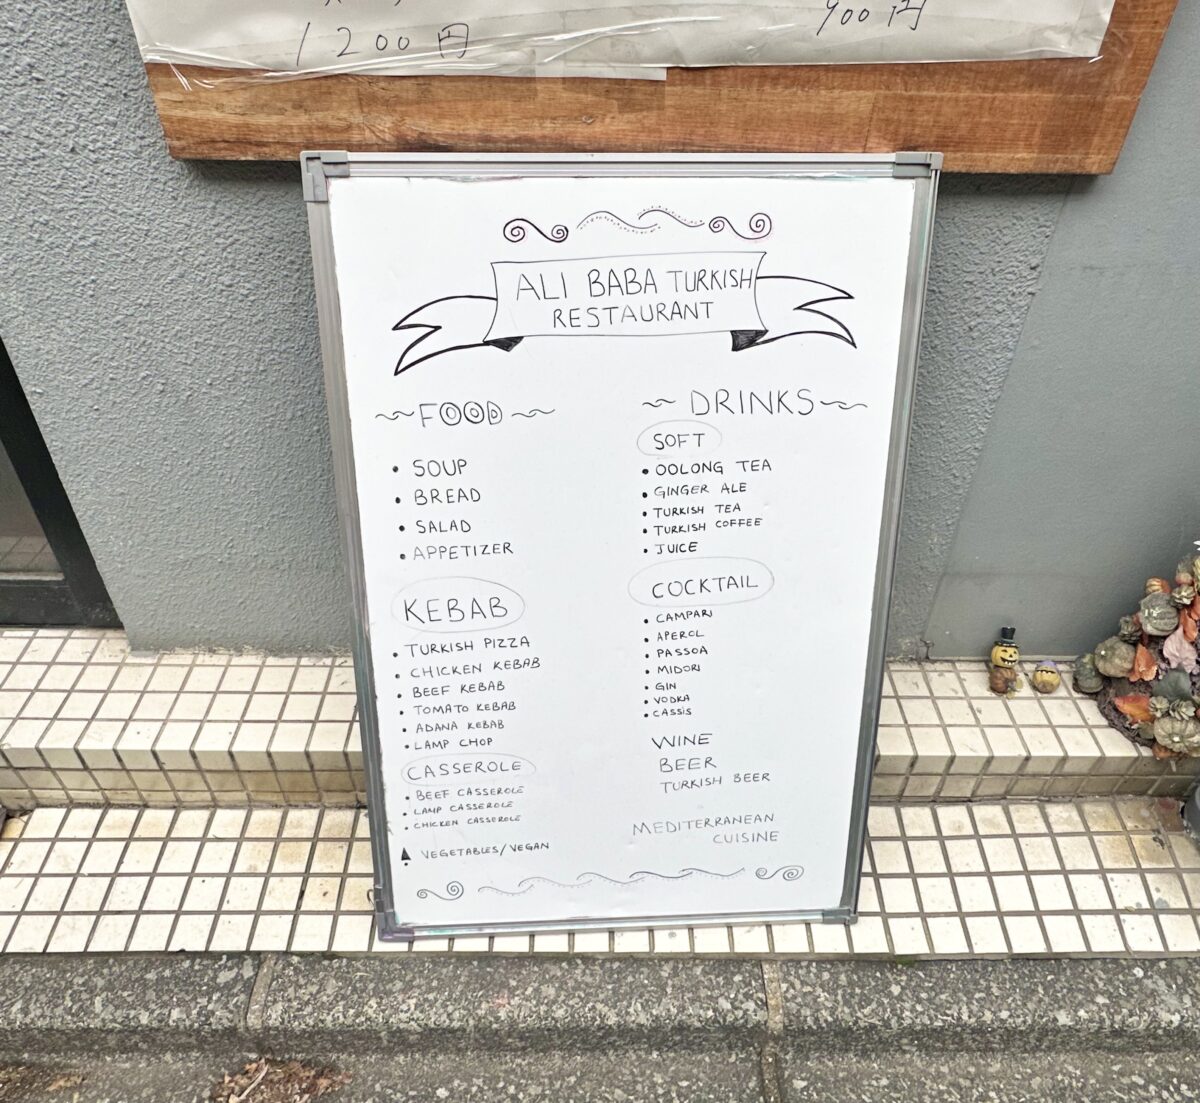 1200円
900円
ALI BABA TURKISH
RESTAURANT
FOOD
• SOUP
• BREAD
• SALAD
• APPETIZER
KEBAB
• TURKISH PIZZA
• CHICKEN KEBAB
• BEEF KEBAB
• TOMATO KEBAB
• ADANA KEBAB
• LAMP CHOP
CASSEROLE
• BEEF CASSEROLE
• LAMP CASSEROLE
• CHICKEN CASSEROLE
VEGETABLES/VEGAN
DRINKS
SOFT
• OOLONG TEA
• GINGER ALE
• TURKISH TEA
• TURKISH COFFEE
• JUICE
COCKTAIL
• CAMPARI
• APEROL
• PASSOA
• MIDORI
• GIN
• VODKA
• CASSIS
WINE
BEER
TURKISH BEER
MEDITERRANEAN
CUISINE